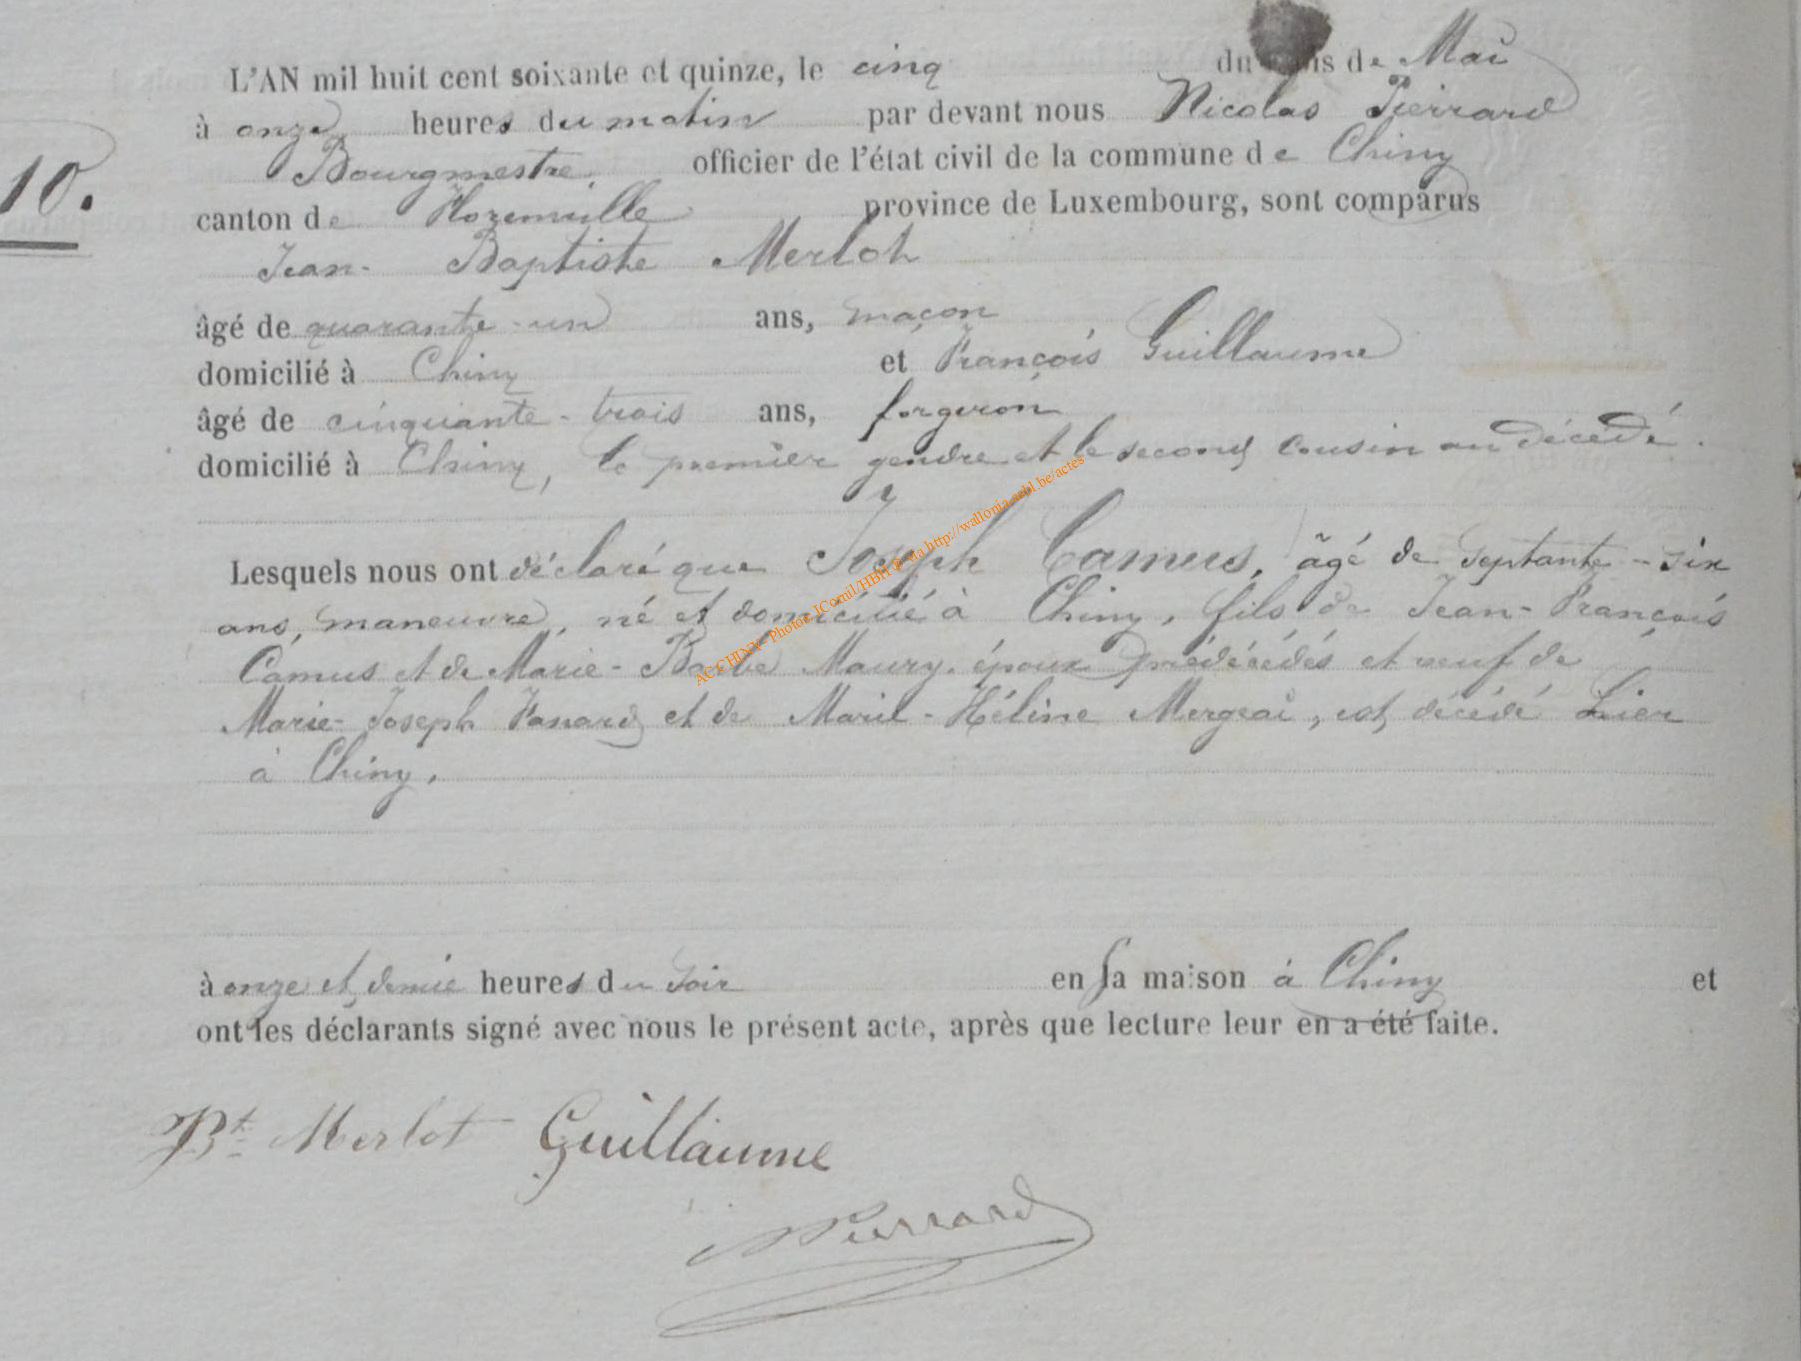 L'AN mil huit cent soixante et quinze, le cinq du mois de Mai
à onze heures du matin par devant nous Nicolas Pierrard
10.
Bourgmestre, officier de l'état civil de la commune de Chiny
canton de province de Luxembourg, sont comparus
Jean-Baptiste Merlot
âgé de quarante-un ans, maçon
domicilié à Chiny et François Guillaume
âgé de cinquante-trois ans, forgeron
domicilié à Chiny, le premier gendre et le second cousin au décédé.
Lesquels nous ont déclaré que Joseph Camus, âgé de septante-six
ans, maneuvre, né et domicilié à Chiny, fils de Jean-François
Camus et de Marie-Barbe Maury, époux prédécédés et veuf de
Marie-Joseph Fanard et de Marie-Hélène Mergeai, est décédé hier
à Chiny.
à onze et demie heures du soir en sa maison à Chiny et
ont les déclarants signé avec nous le présent acte, après que lecture leur en a été faite.
Bt Merlot Guillaume
NPierrard
AC CHINY Photos JComil/HBH via http://wallonia.asbl.be/actes